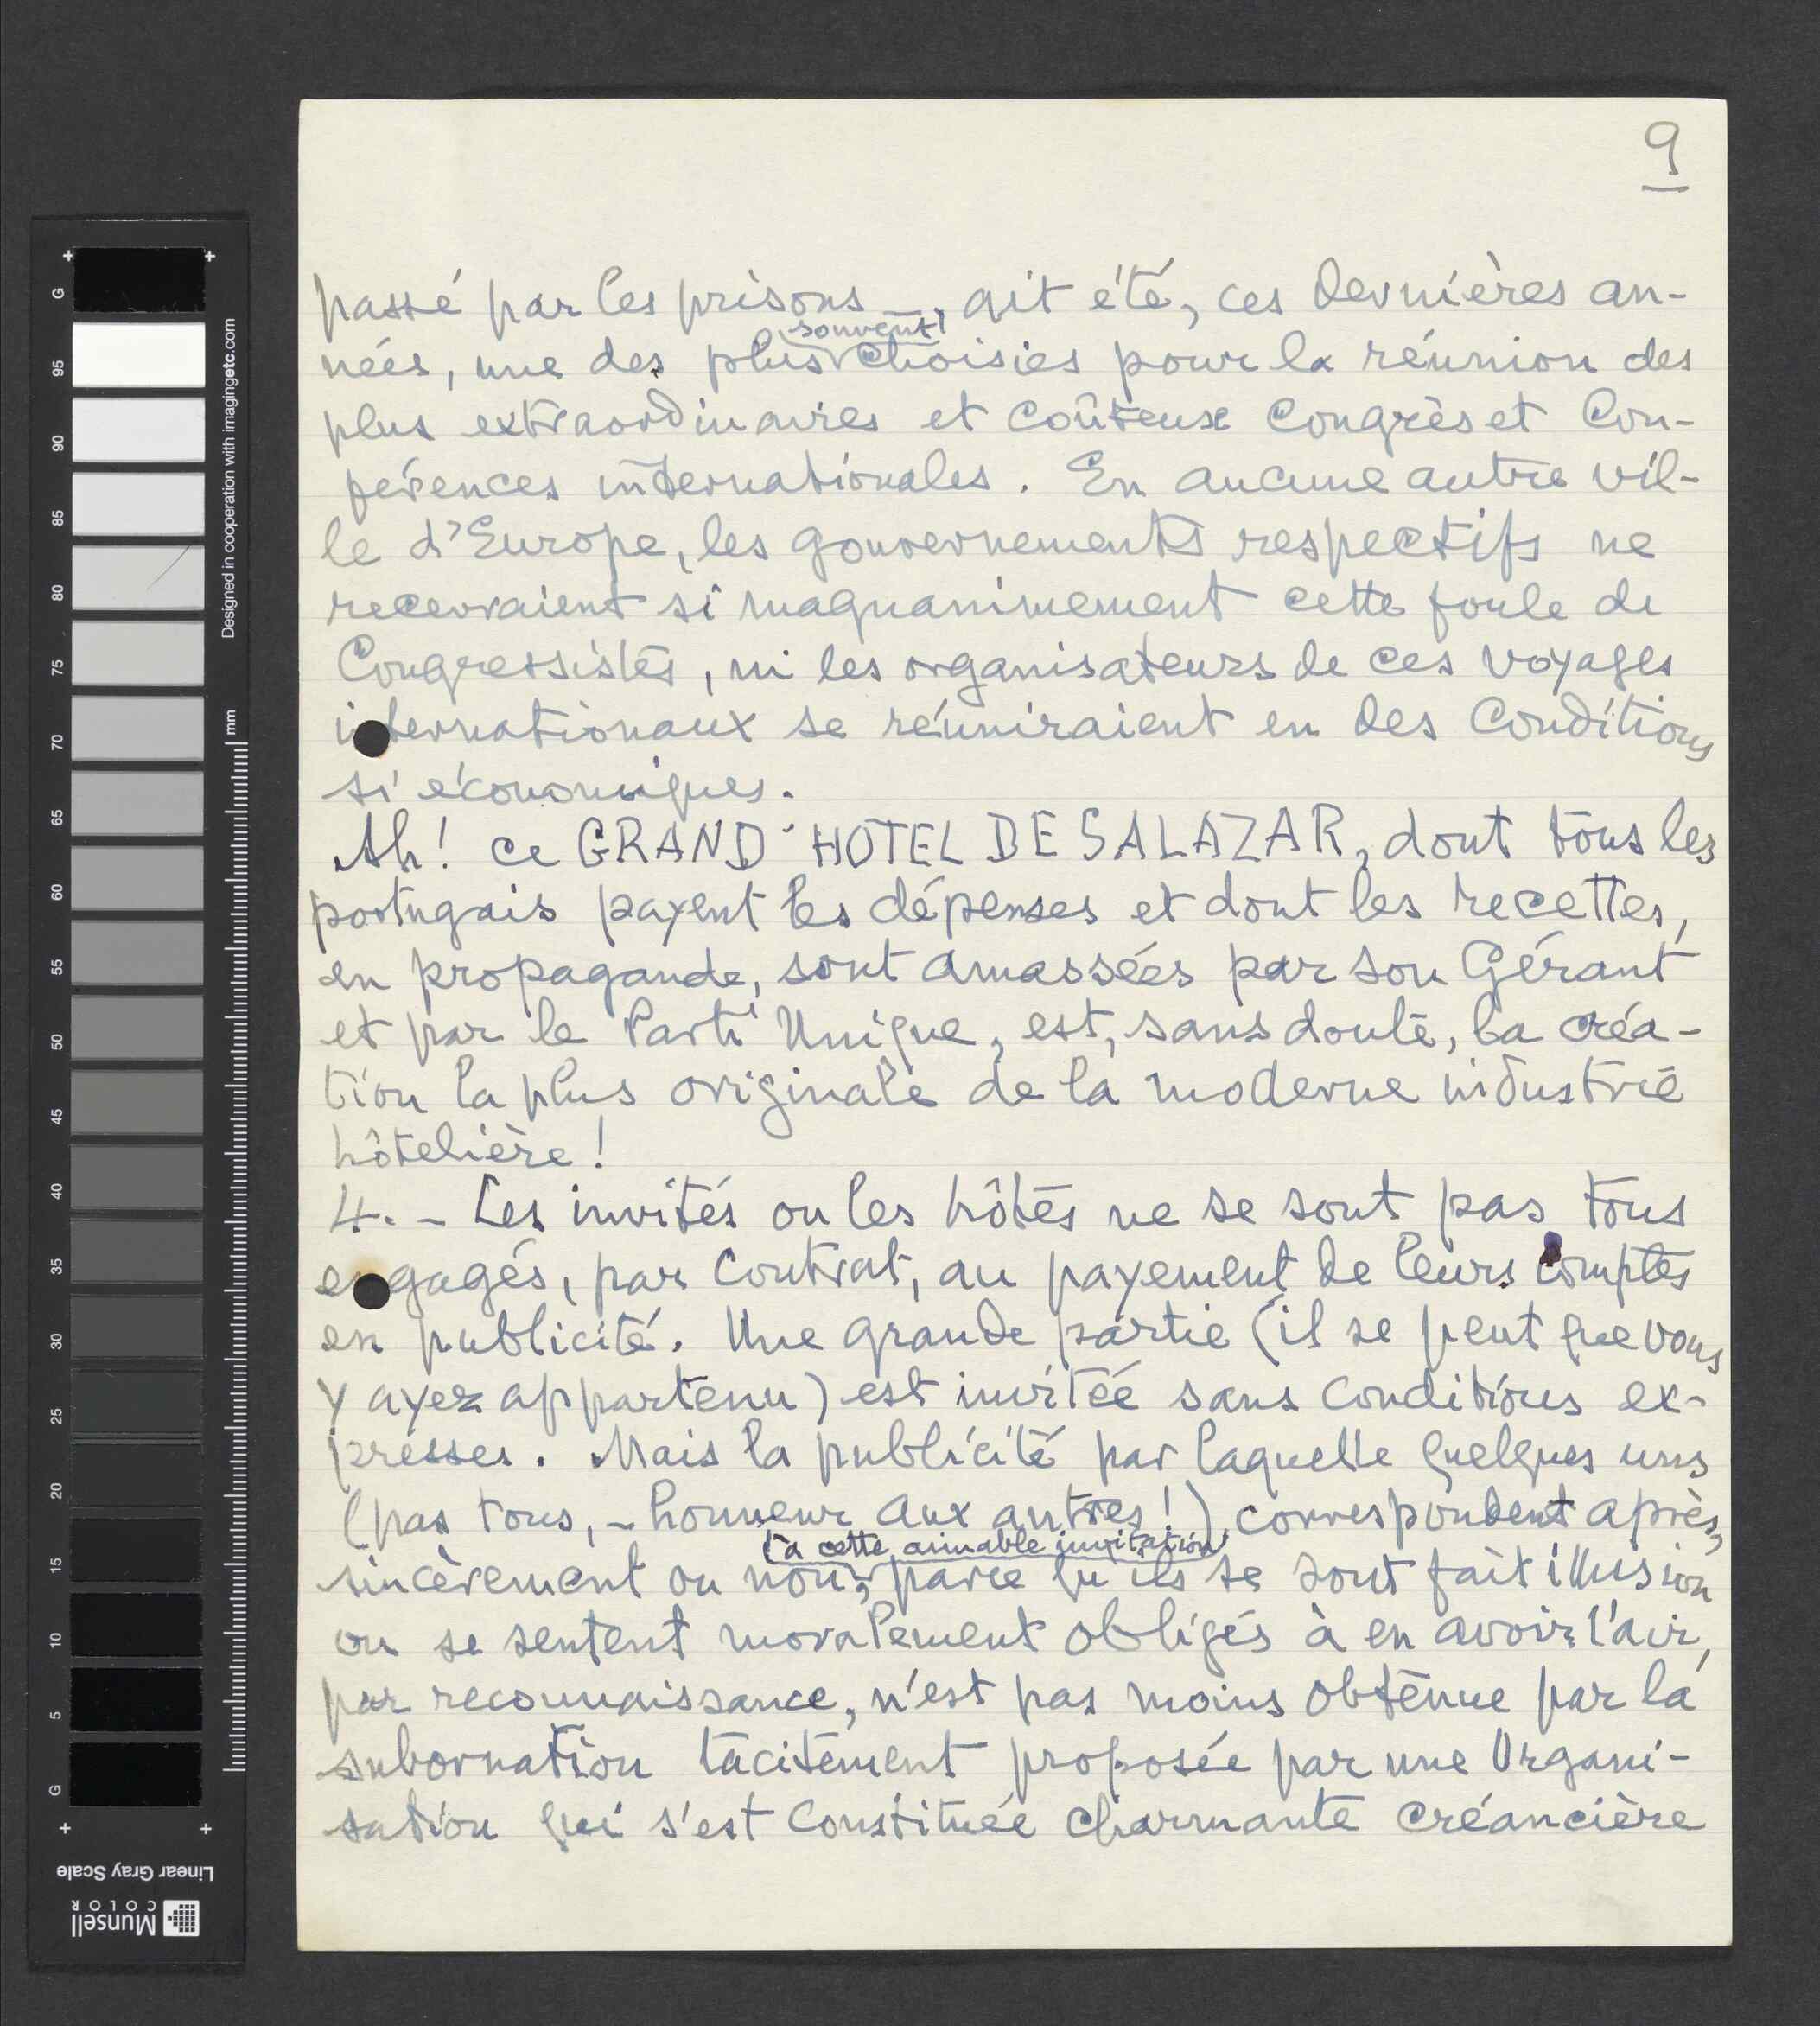 9
passé par les prisons —, ait été, ces dernières an-
souvent
nées, une des plus choisies pour la réunion des
plus extraordinaires et coûteux Congrès et Con-
férences internationales. En aucune autre vil-
le d'Europe, les gouvernements respectifs ne
recevraient si magnanimement cette foule de
Congressistes, ni les organisateurs de ces voyages
internationaux se réuniraient en des conditions
si économiques.
Ah! ce GRAND HOTEL DE SALAZAR, dont tous les
portugais payent les dépenses et dont les recettes,
en propagande, sont amassées par son Gérant
et par le Parti Unique, est, sans doute, la créa-
tion la plus originale de la moderne industrie
hôtelière!
4. - Les invités ou les hôtes ne se sont pas tous
engagés, par contrat, au payement de leurs comptes
en publicité. Une grande partie (il se peut que vous
y ayez appartenu) est invitée sans conditions ex-
presses. Mais la publicité par laquelle quelques uns
(pas tous, - honneur aux autres!) correspondent après,
(à cette aimable invitation)
sincèrement ou non, parce qu'ils se sont fait illusion
ou se sentent moralement obligés à en avoir l'air,
par reconnaissance, n'est pas moins obtenue par la
subornation tacitement proposée par une Organi-
sation qui s'est constituée charmante créancière
G
95
90
85
80
75
70
65
60
55
50
45
40
35
30
25
20
15
10
5
G
Designed in cooperation with imagingetc.com
mm
Linear Gray Scale
Munsell
COLOR